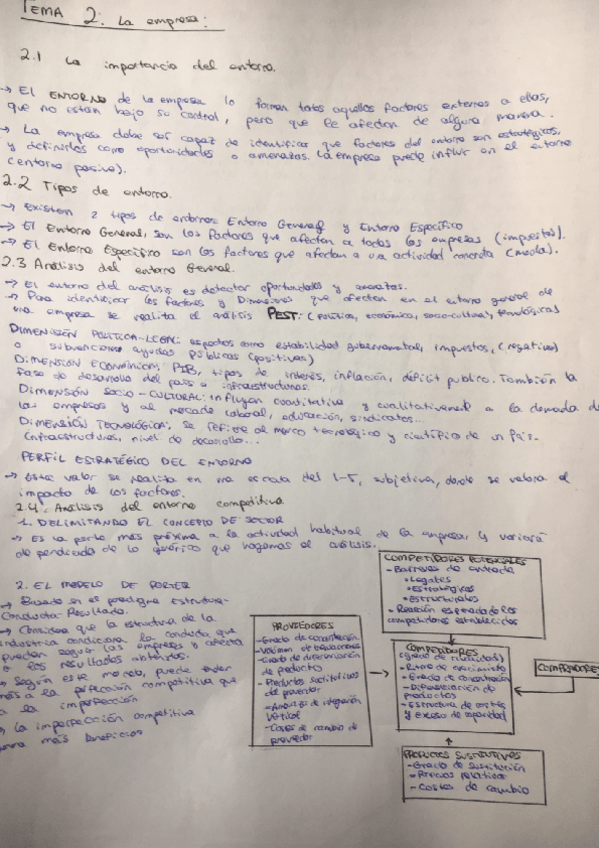 TEMA 2: La empresa:
2.1 La importancia del entorno.
→ El ENTORNO de la empresa lo forman todos aquellos factores externos a ellas,
que no están bajo su control, pero que le afectan de alguna manera.
→ La empresa debe ser capaz de identificar que factores del entorno son estratégicos,
y definirlos como oportunidades o amenazas. La empresa puede influir en el entorno
(entorno pasivo).
2.2 Tipos de entorno.
→ Existen 2 tipos de entornos Entorno General y Entorno Específico
→ El Entorno General, son los factores que afectan a todas las empresas (impuestos).
→ El Entorno Específico son los factores que afectan a una actividad concreta (moda).
2.3 Análisis del entorno General.
→ El entorno del análisis es detectar oportunidades y amenazas.
→ Para identificar los factores y Dimensiones que afectan en el entorno general de
una empresa se realiza el análisis PEST: (Política, económica, socio-cultural, tecnológicas)
DIMENSIÓN POLÍTICA-LEGAL: aspectos como estabilidad gubernamental, impuestos, (negativo)
o subvenciones ayudas públicas (positivas)
DIMENSIÓN ECONÓMICA: PIB, tipos de interés, inflación, déficit publico. También la
fase de desarrollo del país o infraestructuras.
DIMENSIÓN SOCIO-CULTURAL: influyen cuantitativa y cualitativamente a la demanda de
las empresas y al mercado laboral, educación, sindicatos...
DIMENSIÓN TECNOLÓGICA: se refiere al marco tecnológico y científico de un País.
(infraestructuras, nivel de desarrollo...
PERFIL ESTRATÉGICO DEL ENTORNO
→ Este valor se realiza en una escala del 1-5, subjetiva, donde se valora el
impacto de los factores.
2.4. Análisis del entorno competitivo
1. DELIMITANDO EL CONCEPTO DE SECTOR
→ Es la parte más próxima a la actividad habitual de la empresa y variará
dependiendo de lo genérico que hagamos el análisis.
2. EL MODELO DE PORTER
→ Basado en es paradigma Estructura-
Conducta-Resultado.
→ Considera que la estructura de la
industria condiciona la conducta que
pueden seguir las empresas y afecta
a los resultados obtenidos.
→ Según este modelo, puede tender
más a la perfección competitiva que
a la imperfección
→ La imperfección competitiva
más beneficios
COMPETIDORES POTENCIALES
- Barreras de entrada
• Legales
• Estratégicas
• Estructurales
- Reacción esperada de los
competidores establecidos
PROVEEDORES
- Grado de concentración
- Volumen de transacciones
- Grado de diferenciación
de productos
- Productos sustitutivos
del proveedor
- Amenazas de integración
vertical
- Costes de cambio de
proveedor
COMPETIDORES
(grado de rivalidad)
- Ritmo de crecimiento
- Grado de concentración
- Diferenciación de
productos
- Estructura de costes
y exceso de capacidad
COMPRADORES
PRODUCTOS SUSTITUTIVOS
- Grado de sustitución
- Precios relativos
- Costes de cambio